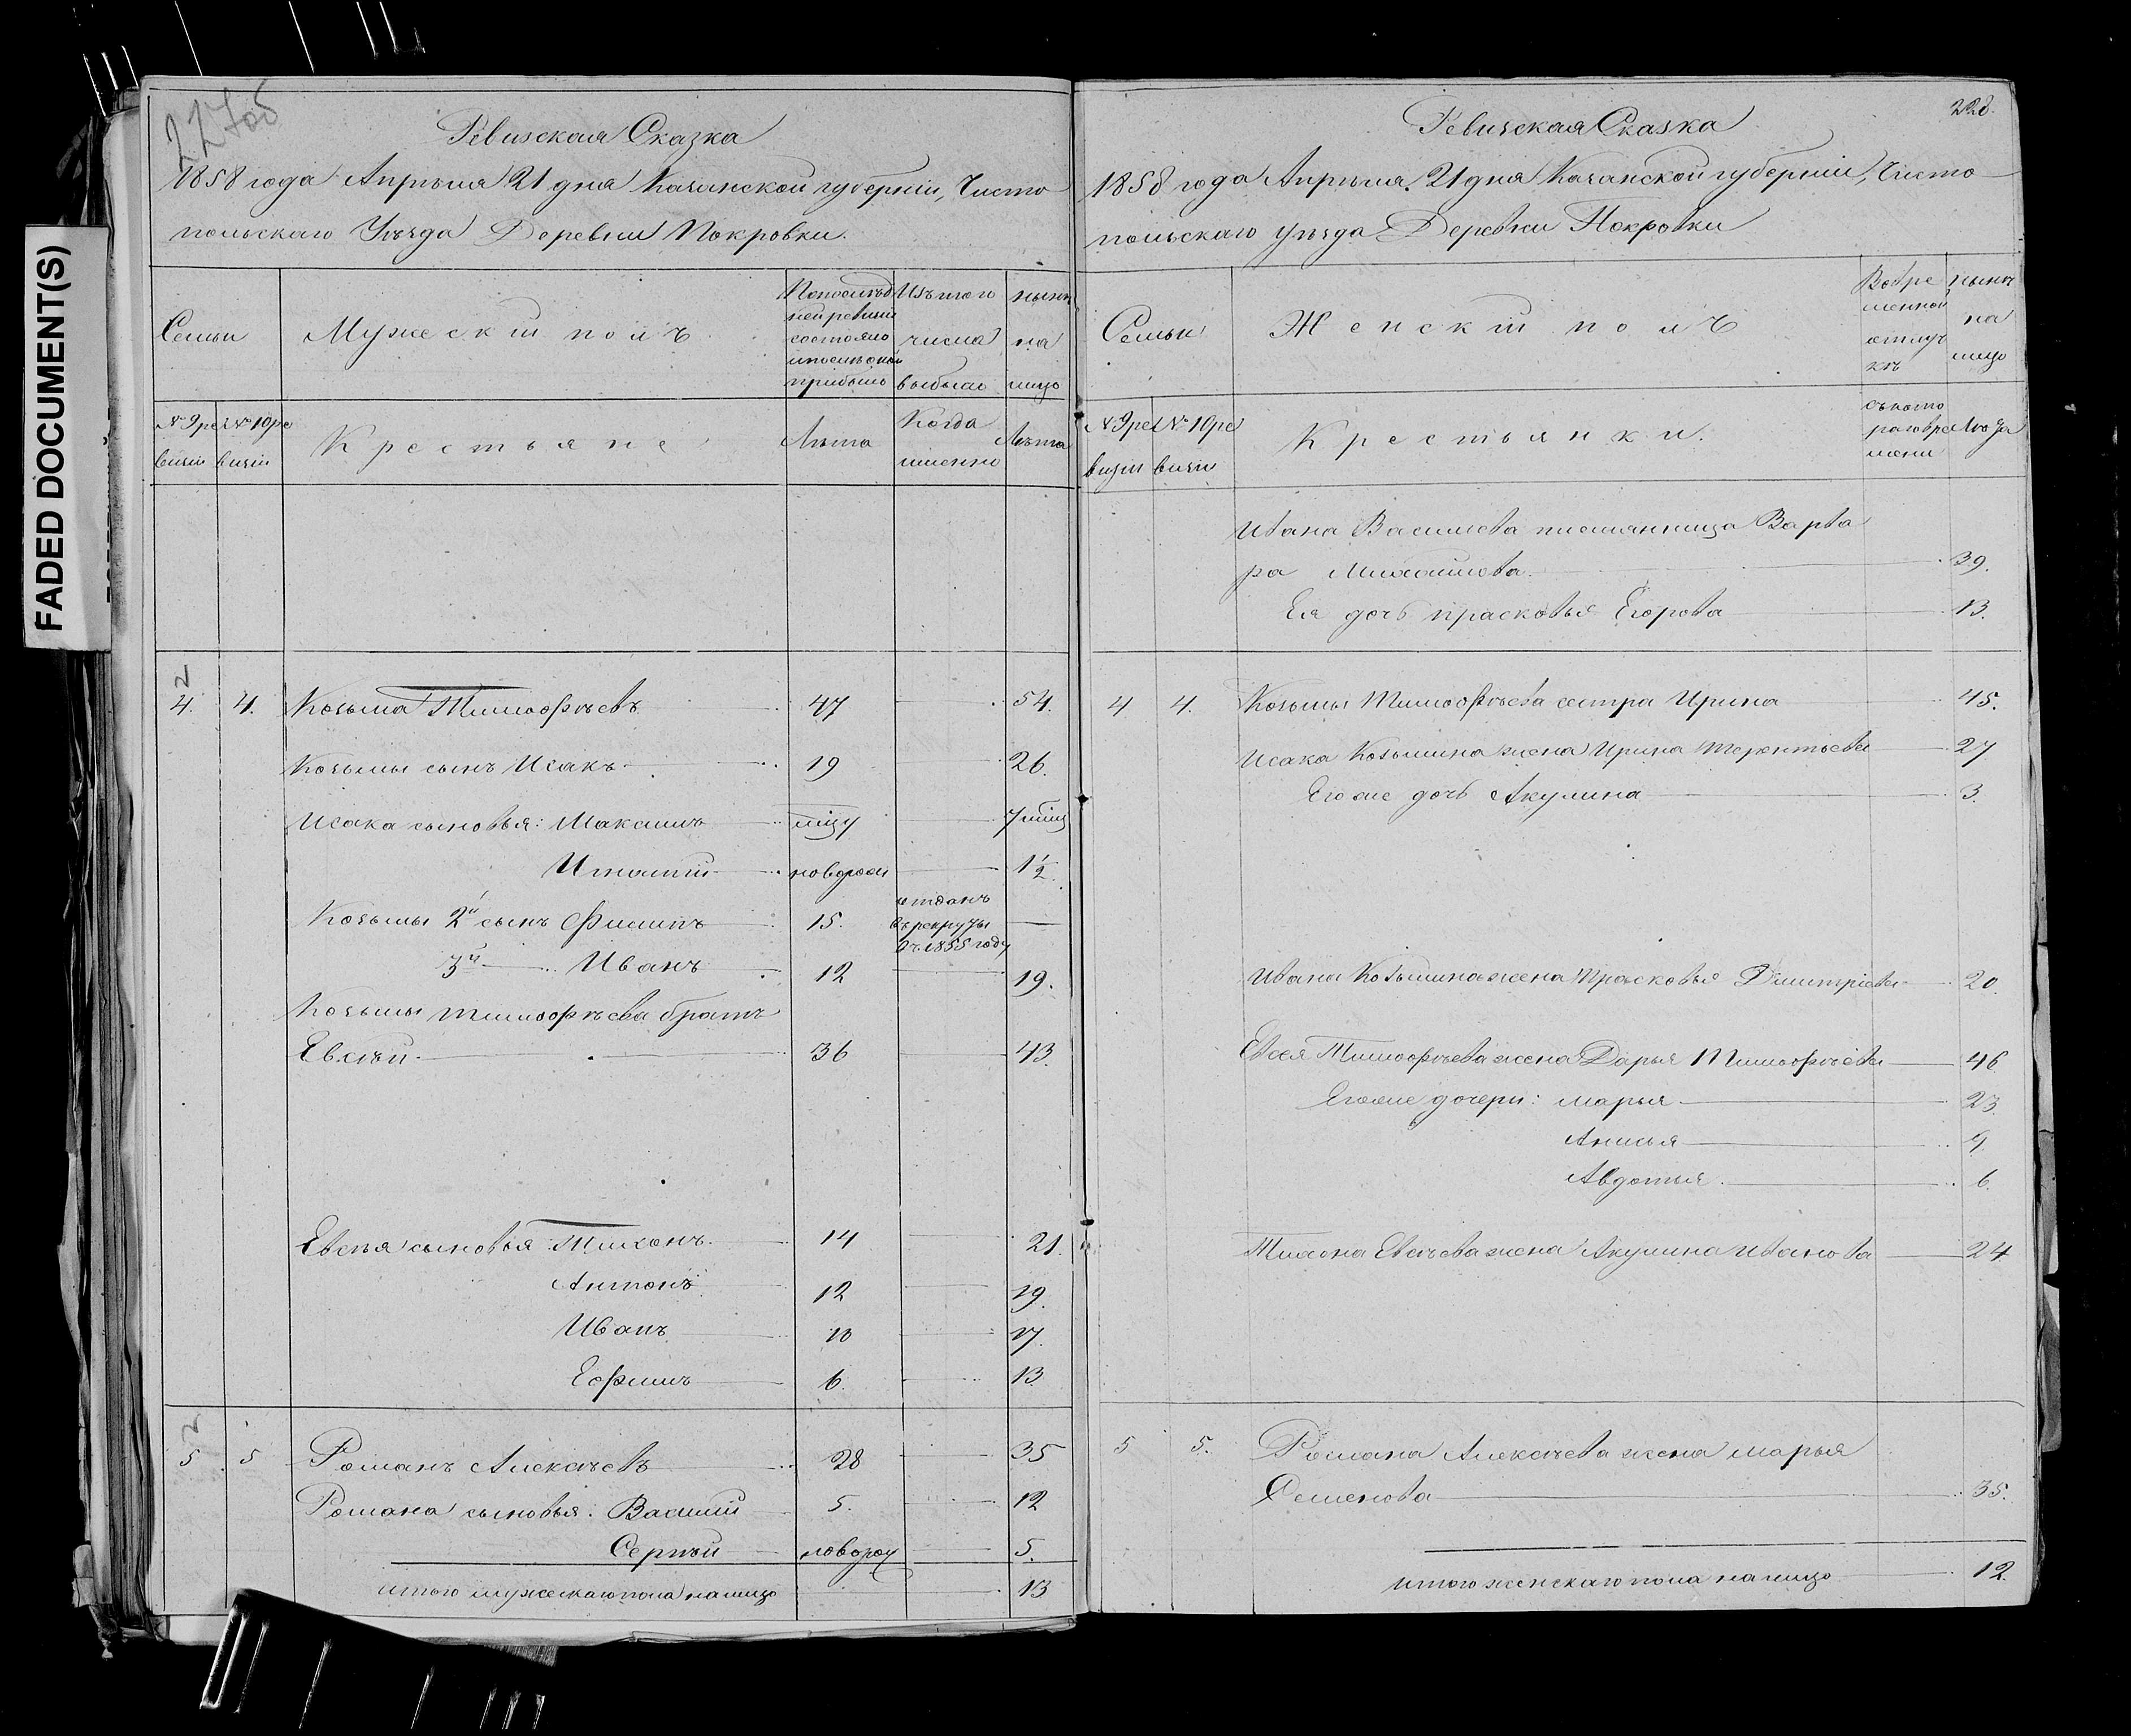 FADED DOCUMENT(S)
227об
Ревизская Сказка
1858 года Апрѣля 21 дня Казанской губерніи, Чисто
польскаго Уѣзда Деревни Покровки.
Семьи
Мужескій полъ
По послѣд
ней ревизіи
состояло
и послѣ оной
прибыло
Изъ того
числа
выбыло
нынѣ
на
лицо
№ 9 ре
визіи
№ 10 ре
визіи
Крестьяне
Лѣта
Когда
именно
Лѣта
4. 4. Козьма Тимофѣевъ 47 54.
Козьмы сынъ Исакъ 19 26.
Исака сыновья: Максимъ 7 мѣц
Игнатій новорож 1½
Козьмы 2й сынъ Филипъ 15. отданъ
въ рекруты
въ 1855 году
3й Иванъ 12 19.
Козьмы Тимофѣева братъ
Евсѣй 36 43.
Евсѣя сыновья Тихонъ 14 21.
Антонъ 12 19.
Иванъ 10 17.
Ефимъ 6. 13
5 5 Романъ Алексѣевъ 28 35
Романа сыновья: Василій 5. 12
Сергѣй новорож 5.
итого мужескаго пола налицо 13
228.
Ревизская Сказка
1858 года Апрѣля 21 дня Казанской губерніи, Чисто
польскаго уѣзда Деревни Покровки
Семьи
Женскій полъ
Во вре
менной
отлуч
кѣ
нынѣ
на
лицо
№ 9 ре
визіи
№ 10 ре
визіи
Крестьянки.
съ кото
раго вре
мени
Лѣта
Ивана Васильева племянница Варва
ра Михайлова 39.
Ея дочь Прасковья Егорова 13.
4 4. Козьмы Тимофѣева сестра Ирина 45.
Исака Козьмина жена Ирина Терентьева 27
Его же дочь Акулина 3.
Ивана Козьмина жена Прасковья Димитріева 20.
Евсея Тимофѣева жена Дарья Тимофѣева 46
Его же дочери: Марья 23.
Анисья 9.
Авдотья 6.
Тихона Евсѣева жена Акулина Иванова 24
5 5. Романа Алексѣева жена Марья
Семенова 35.
итого женскаго пола налицо 12.